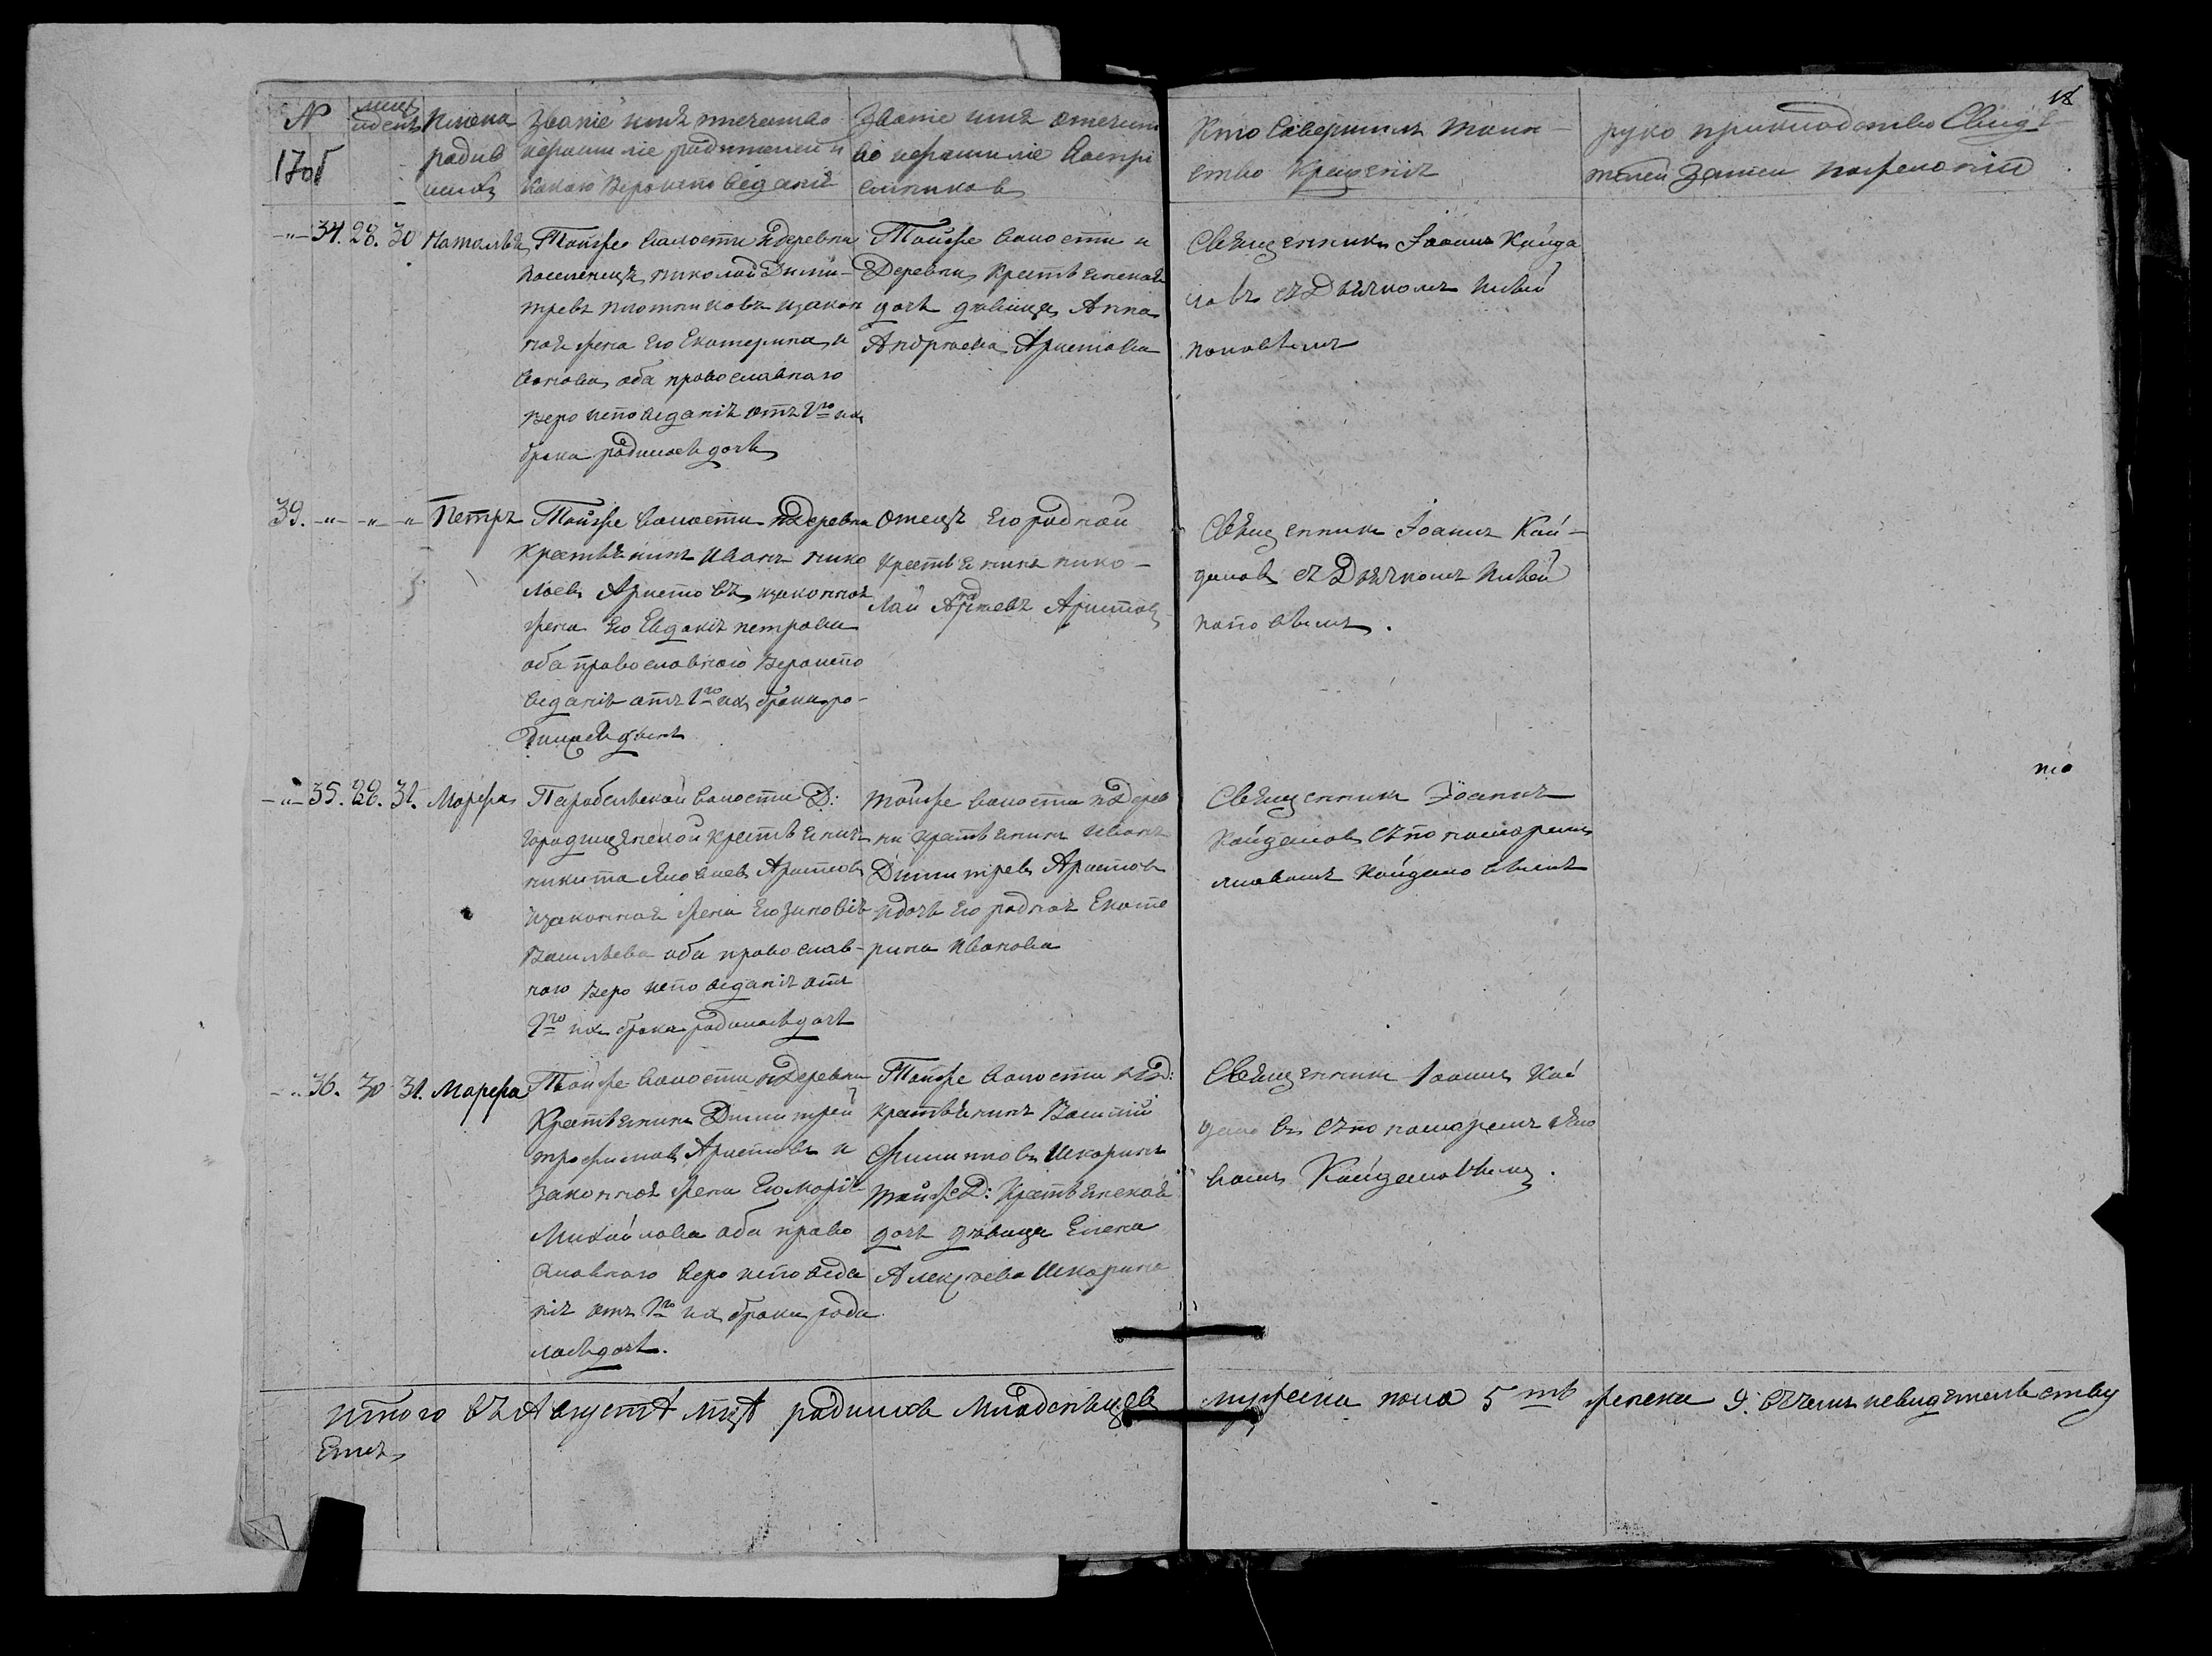 18
№ мцъ идень Имена Званіе имя отечество Званіе имя отечест
1705 родив ифамиліе родителей и во ифамиліе воспрі
шихъ какого вероисповеданія емниковъ
Кто совершилъ таин-
ство крещенія
рукоприкладство свидѣ
телей записи пожеланію
-"- 34. 28. 30 Наталья Тойже волости идеревни
поселенецъ николай Дими-
тревъ плотниковъ изакон
ная жена его Екатерина и
ванова, оба православнаго
вероисповеданія отъ 1го ихъ
брака родилась дочь
Тойже волости и
Деревни, крестьянская
дочь девица Анна
Андреева Аристова
Священникъ Іоаннъ Кайда
ловъ съ Дьячкомъ Ильей
поповымъ
39. -"- -"- " Петръ Тойже волости идеревни
крестьянинъ Иванъ нико
лаевъ Аристовъ, изаконная
жена его Евдокія петрова
оба православнаго вероиспо
веданія отъ 1го ихъ брака ро-
дился сынъ
отецъ его родной
крестьянинъ нико-
лай Аристовъ
Священникъ Іоаннъ Кай-
даловъ съ Дьячкомъ Ильей
поповымъ.
-"- 35. 28. 31. Марфа Парабельской волости Д:
городищенской крестьянинъ
никита Яковлев Аристовъ
изаконная жена его зиновія
Васильева оба православ-
наго вероисповеданія отъ
1го ихъ брака родилась дочь
тойже волости идерев
ни крестьянинъ Иванъ
Димитревъ Аристовъ
идочь его родная Екате
рина Иванова
Священникъ Іоаннъ
Кайдаловъ съпономаремъ
Кайдаловымъ
-"- 36. 30 31. Марфа Тойже волости идеревни
Крестьянинъ Димитрей
трофимовъ Аристовъ и
законная жена его марія
Михайлова оба право
славнаго вероисповеда
нія отъ 1го ихъ брака роди
лась дочь.
Тойже волости и Д:
крестьянинъ Василий
Филиповъ Шкаринъ
тойже Д: Крестьянская
дочь девица Елена
Алексеева Шкарина
Священникъ Іоаннъ Кай
даловъ съпономаремъ Яко
вомъ Кайдаловымъ.
итого въ Августѣ мцѣ родилось младенцевъ мужеска пола 5ть женска 9. въчемъ исвидетельству
емъ